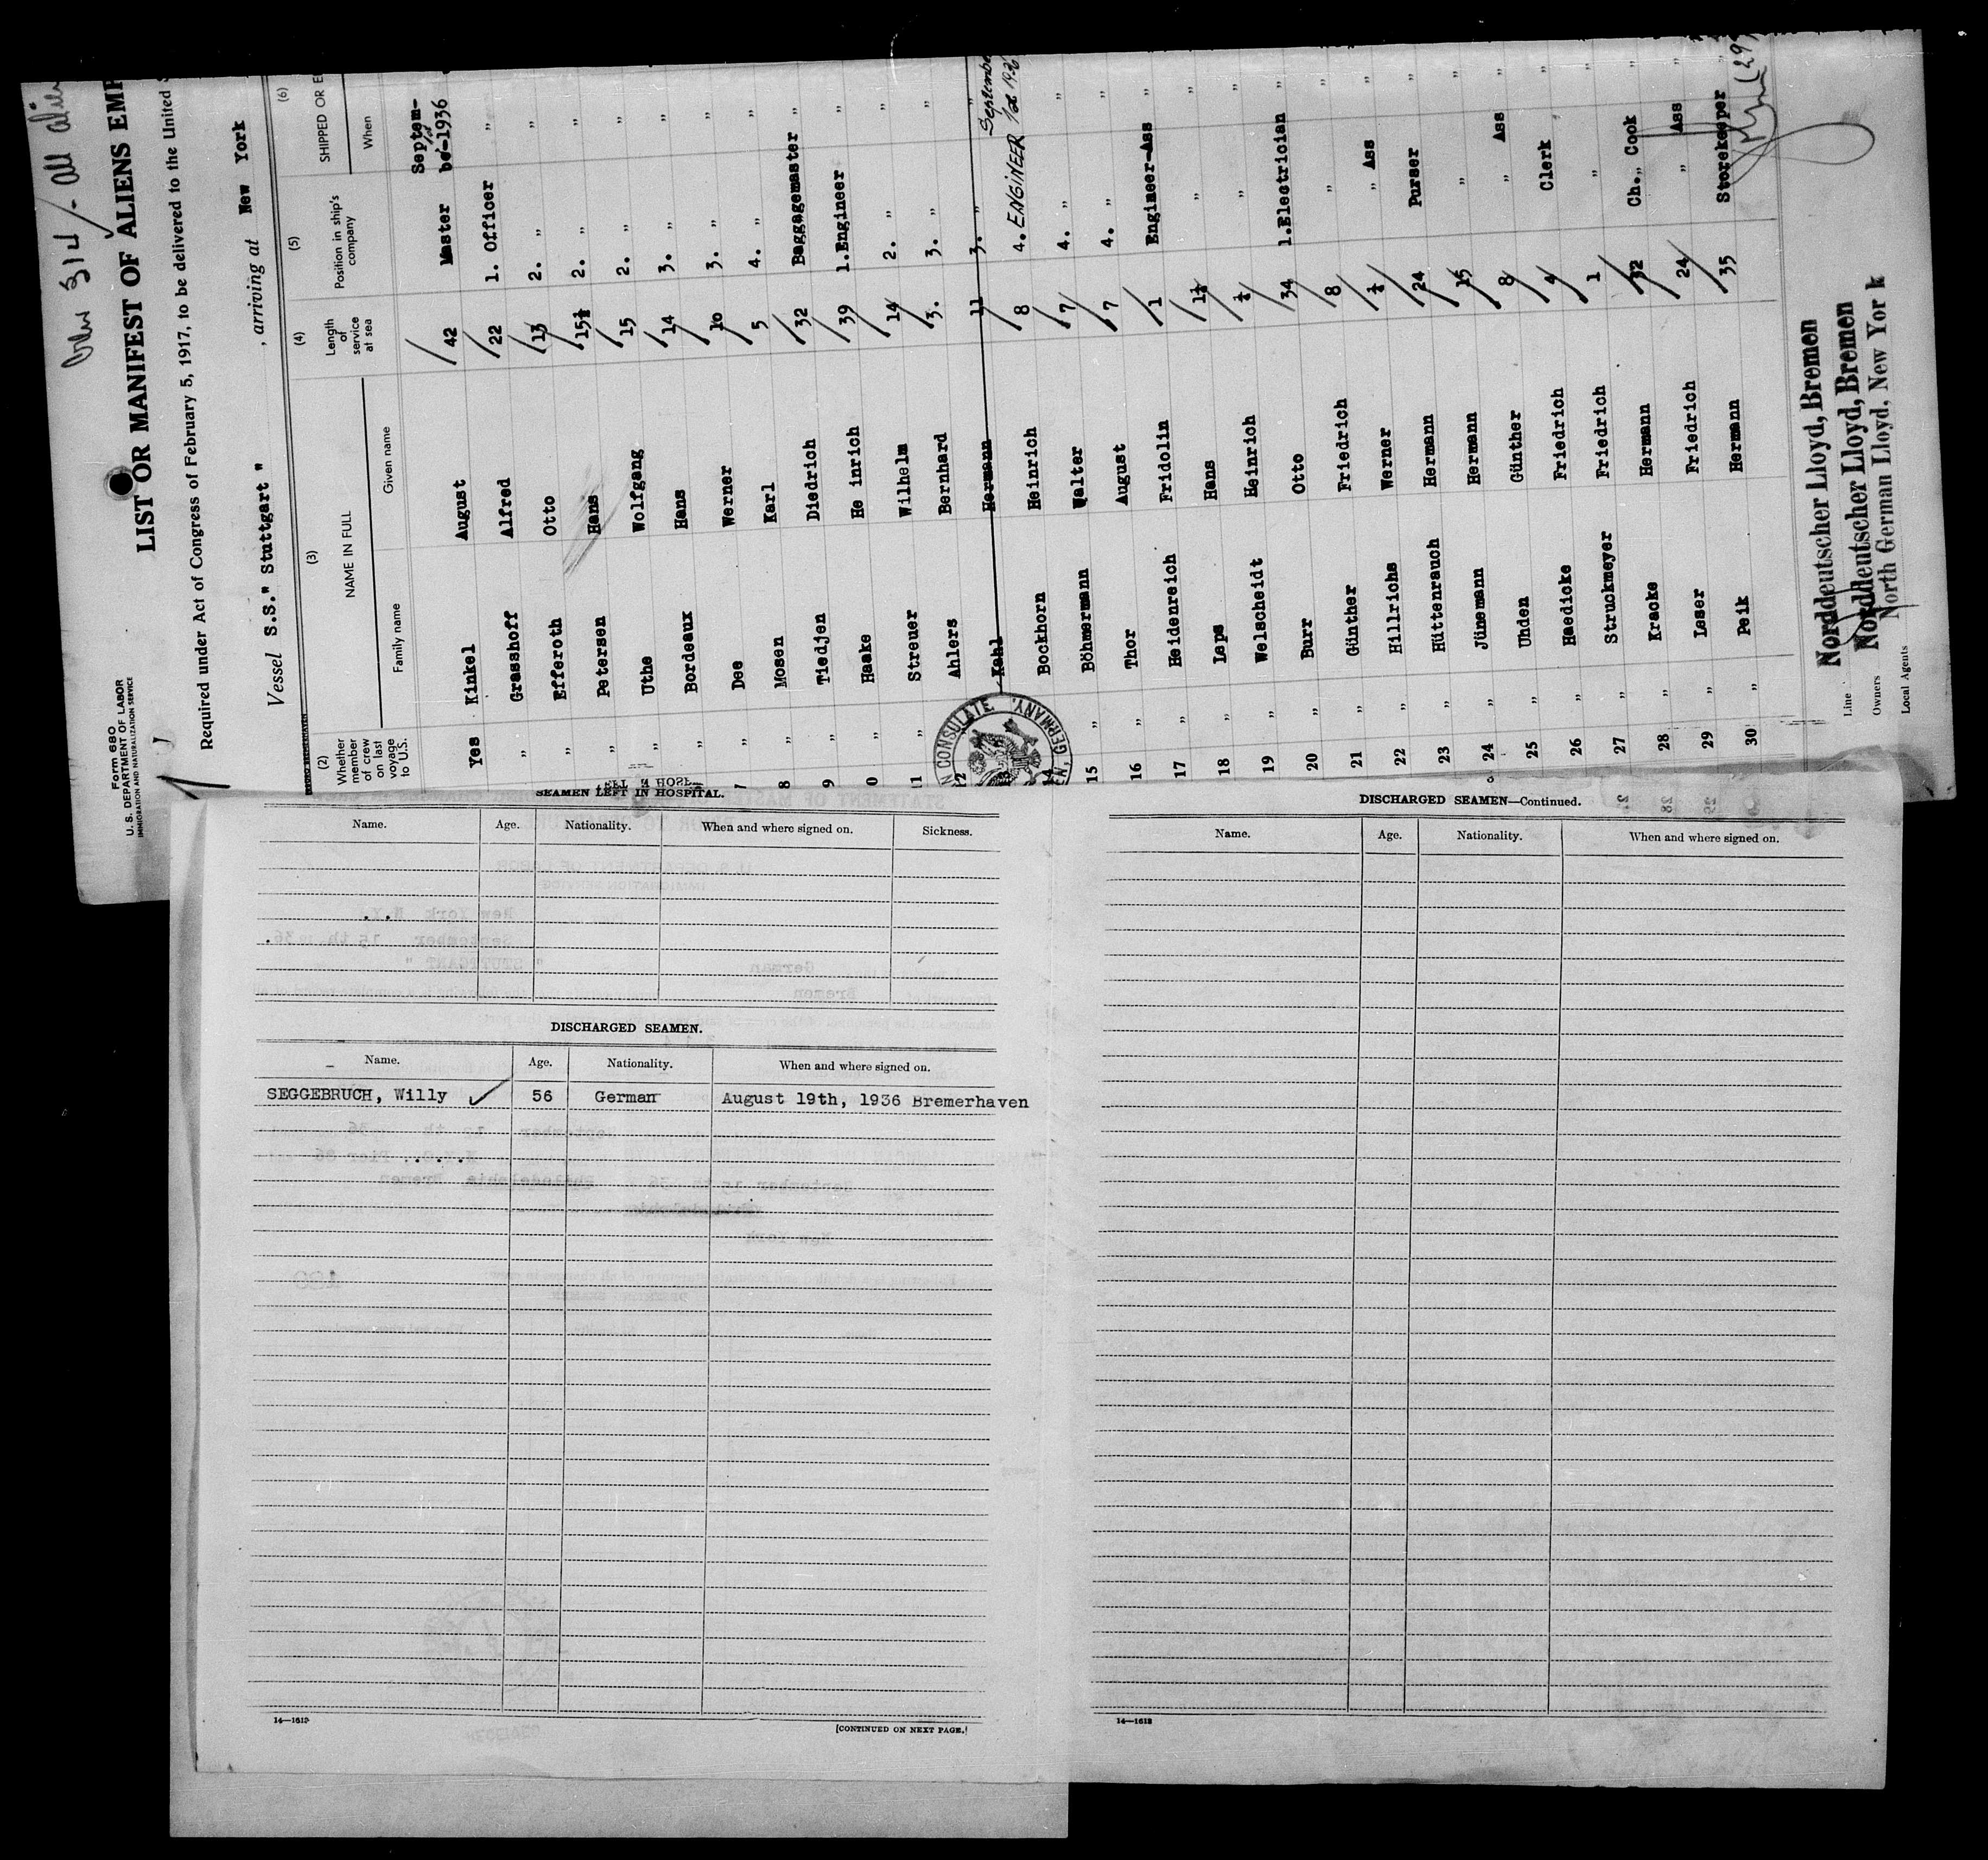 Crew 314 - all alien
LIST OR MANIFEST OF ALIENS EMP
Form 680
U. S. DEPARTMENT OF LABOR
IMMIGRATION AND NATURALIZATION SERVICE
Required under Act of Congress of February 5, 1917, to be delivered to the United S
Vessel S.S." Stuttgart " , arriving at New York
(2) (3) (4) (5) (6)
Whether member of crew on last voyage to U.S.
NAME IN FULL
Family name Given name
Length of service at sea
Position in ship's company
SHIPPED OR E
When
Yes Kinkel August 42 Master Septem-
be 1st 1936
" Grasshoff Alfred 22 1. Officer "
" Efferoth Otto 13 2. " "
" Petersen Hans 15½ 2. " "
" Uthe Wolfgang 15 2. " "
" Bordeaux Hans 14 3. " "
7 " Dee Werner 10 3. " "
8 " Mosen Karl 5 4. " "
9 " Tiedjen Diedrich 32 Baggagemaster "
0 " Haake He inrich 39 1.Engineer "
11 " Streuer Wilhelm 14 2. " "
12 Ahlers Bernhard 3. 3. " "
13 Kahl Hermann 11 3. " "
14 Bockhorn Heinrich 8 4. ENGINEER September 1st 1936
15 " Böhmermann Walter 7 4. " "
16 " Thor August 7 4. " "
17 " Heidenreich Fridolin 1 Engineer-Ass "
18 " Leps Hans 1½ " "
19 " Welscheidt Heinrich ½ " "
20 " Burr Otto 34 1.Electrician "
21 " Günther Friedrich 8 " "
22 " Hillrichs Werner ½ " Ass "
23 " Hüttenrauch Hermann 24 Purser "
24 " Jünemann Hermann 15 " "
25 " Uhden Günther 8 " Ass "
26 " Haedicke Friedrich 4 Clerk "
27 " Struckmeyer Friedrich 1 " "
28 " Kracke Hermann 32 Ch., Cook "
29 " Leser Friedrich 24 " Ass "
30 " Peik Hermann 35 Storekeeper "
(29)
Line Norddeutscher Lloyd, Bremen
Owners Norddeutscher Lloyd, Bremen
Local Agents North German Lloyd, New Yor k
CONSULATE.
GERMANY.
SEAMEN LEFT IN HOSPITAL.
Name. Age. Nationality. When and where signed on. Sickness.
DISCHARGED SEAMEN.
Name. Age. Nationality. When and where signed on.
SEGGEBRUCH, Willy 56 German August 19th, 1936 Bremerhaven
14—1612
[CONTINUED ON NEXT PAGE.]
DISCHARGED SEAMEN—Continued.
Name. Age. Nationality. When and where signed on.
14—1612